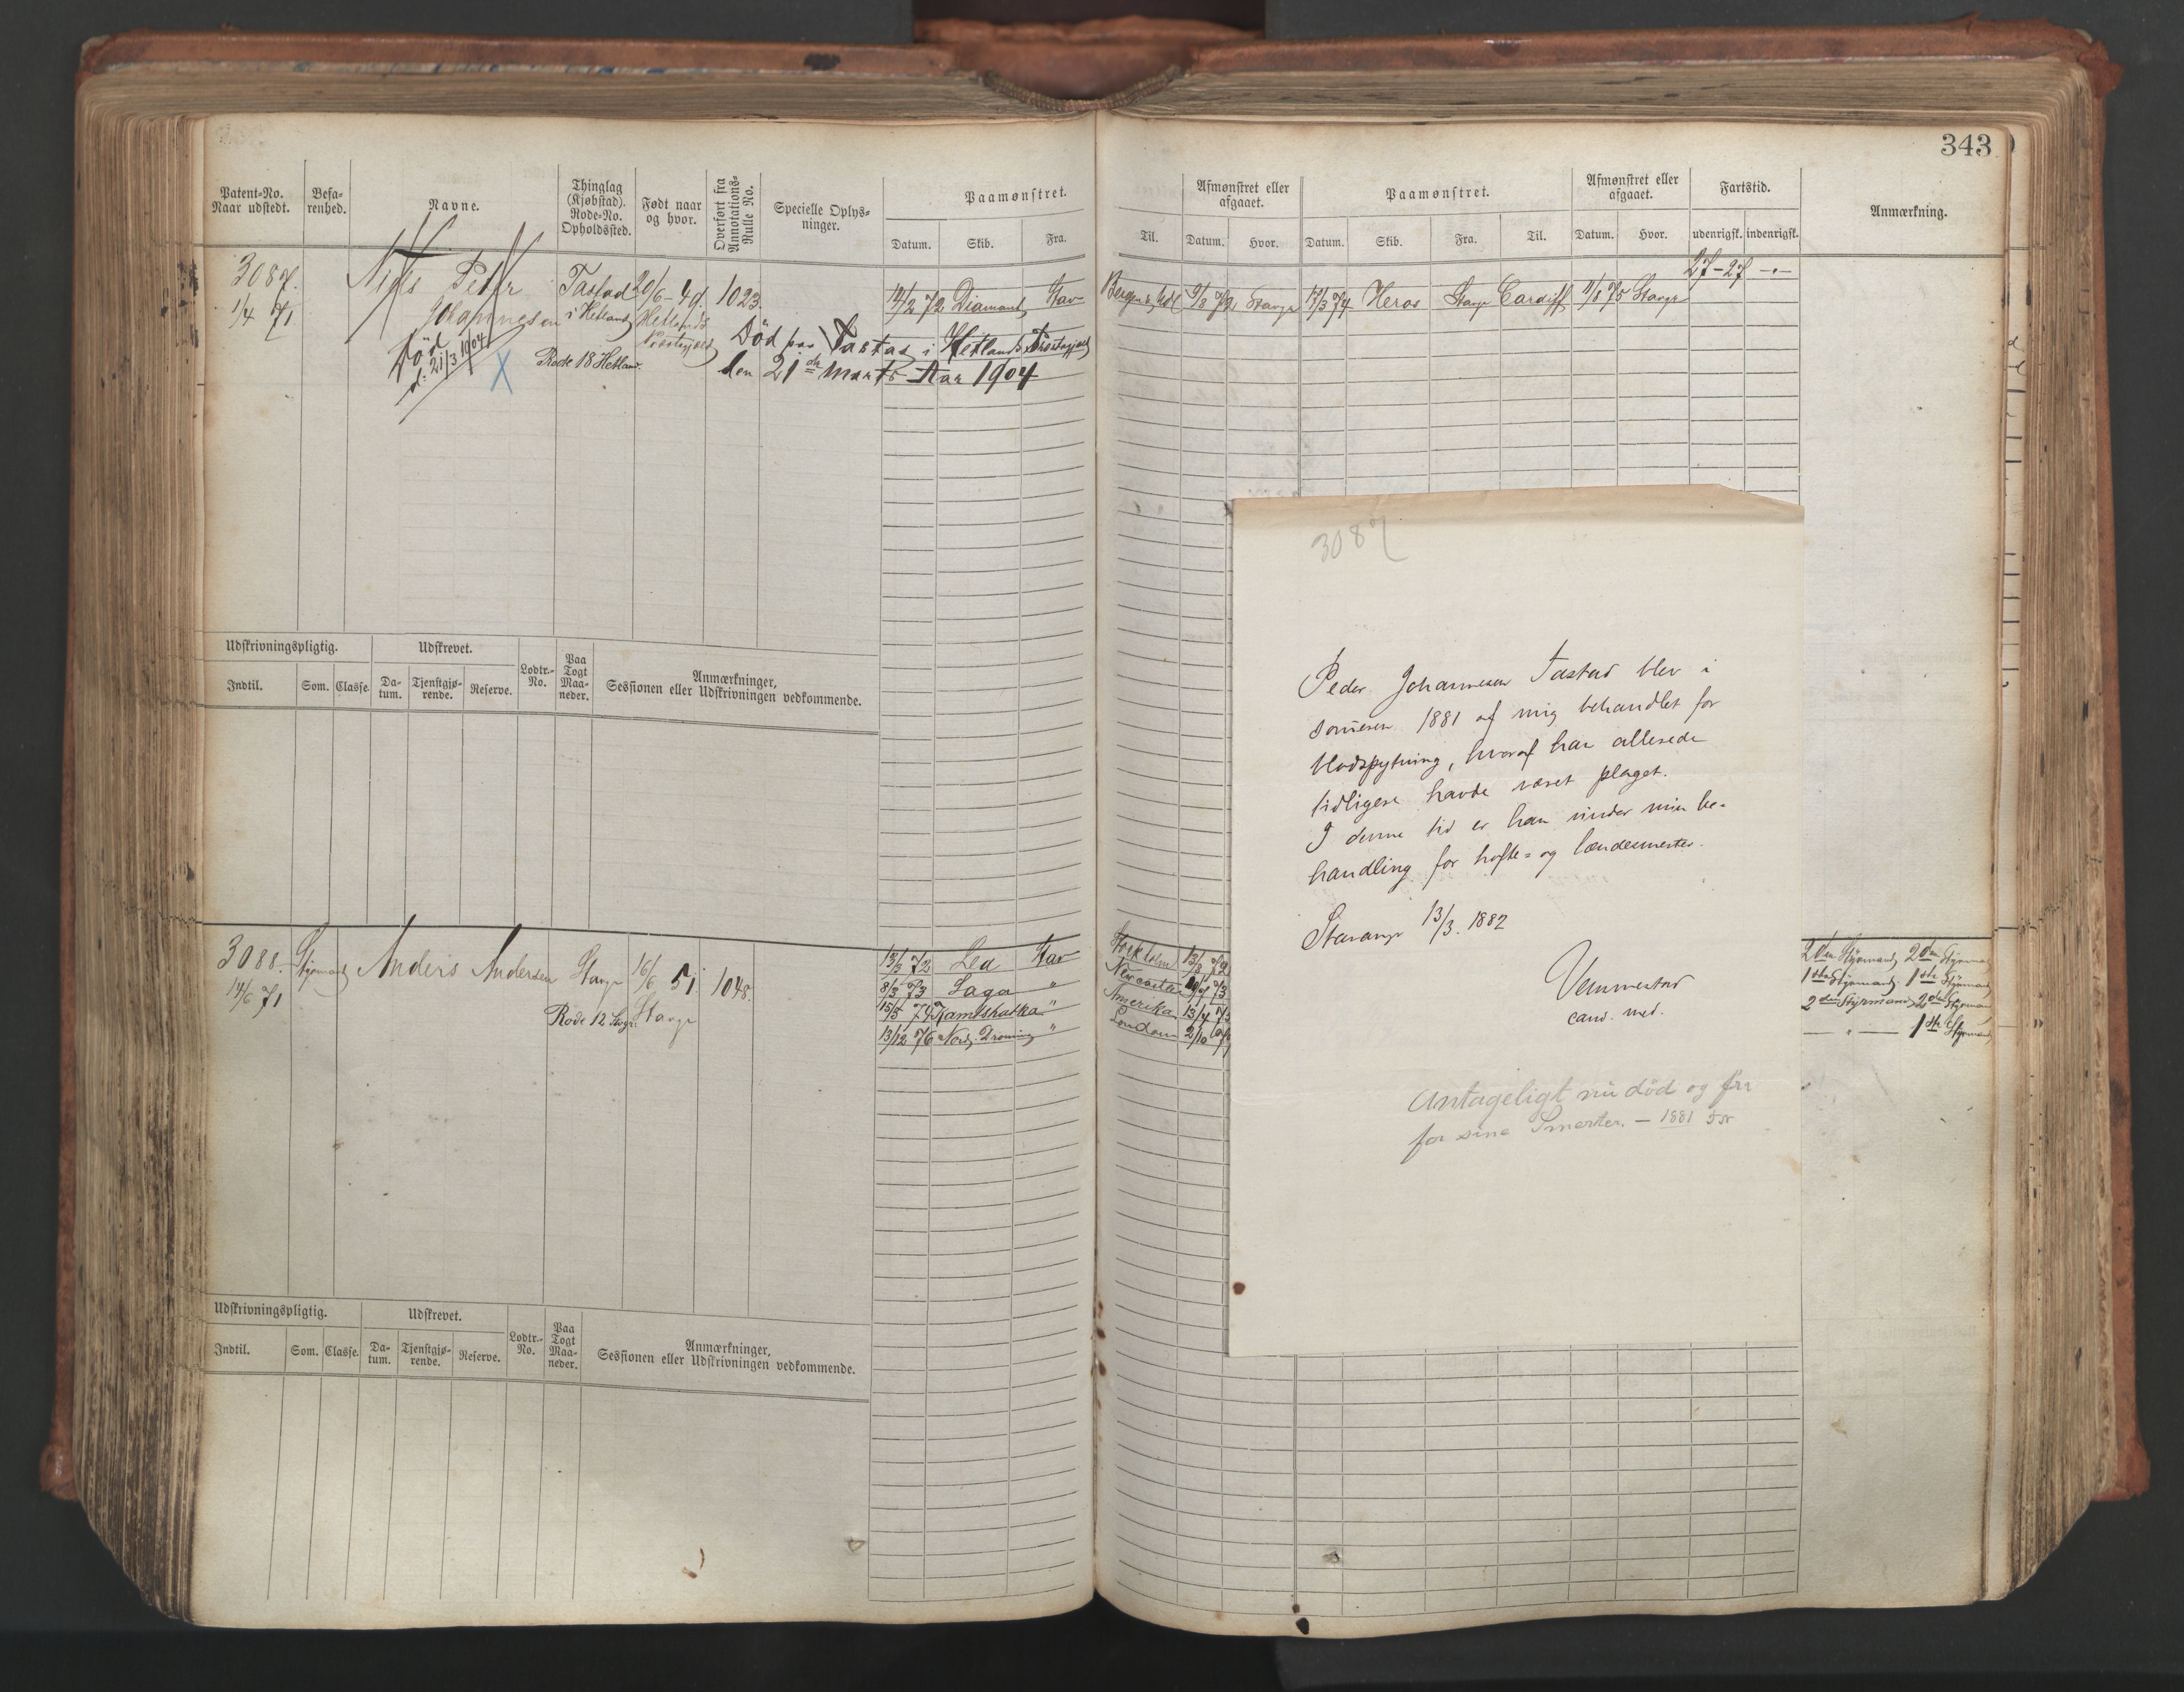 343
Patent-No. Naar udstedt.
Befa-renhed.
Navne.
Thinglag (Kjøbstad). Rode-No. Opholdssted.
Født naar og hvor.
Overført fra Annotations-Rulle No.
Specielle Oplys-ninger.
Paamønstret.
Datum. Skib. Fra.
Til.
Afmønstret eller afgaaet.
Datum. Hvor.
Paamønstret.
Datum. Skib. Fra. Til.
Afmønstret eller afgaaet.
Datum. Hvor.
Fartstid.
udenrigsk. indenrigsk.
Anmærkning.
27-27 -"-
3087. Niels Peter Tastad 20/6-49. 1023. 12/2 72 Diamant Stav
Bergen 9/3 72 Stavgr 17/3 74 Heros Stavgr Cardiff 11/8 75 Stavgr
1/4 71 Johannesen i Hetland Hetlands
Præstegjeld
Død paa Tastad i Hetlands Præstegjeld
Død d. 21/3 1904
X Rode 18 Hetland.
den 21de Marts Aar 1904
Udskrivningspligtig.
Udskrevet.
Lodtr.-No.
Paa Togt Maa-neder.
Anmærkninger,
Sessionen eller Udskrivningen vedkommende.
Indtil. Som. Classe. Da-tum. Tjenstgjø-rende. Reserve.
3088. Styrmand Anders Andersen Stavgr 16/6 51. 1048.
14/6 71 Rode 12 Stavgr. Stavgr
13/3 72 Lea Stav Stockholm
8/3 73 Saga " Newcastle
15/5 74 Kamtskatka " Amerika 13/4 75
13/12 76 Nord. Droning " London 2/10
2den Styrmand 2den Styrmand
1ste Styrmand 1ste Styrmand
2den Styrmand 2den Styrmand
— " — 1ste Styrmand
3087
Peder Johannesen Tastad blev i
someren 1881 af mig behandlet for
blodspytning, hvoraf han allerede
tidligere havde været plaget.
I denne tid er han under min be-
handling for hofte- og lændesmerter.
Stavanger 13/3. 1882
Vemmestad
cand. med.
Antageligt nu død og fri
for sine Smerter. — 1881
Udskrivningspligtig.
Udskrevet.
Lodtr.-No.
Paa Togt Maa-neder.
Anmærkninger,
Sessionen eller Udskrivningen vedkommende.
Indtil. Som. Classe. Da-tum. Tjenstgjø-rende. Reserve.